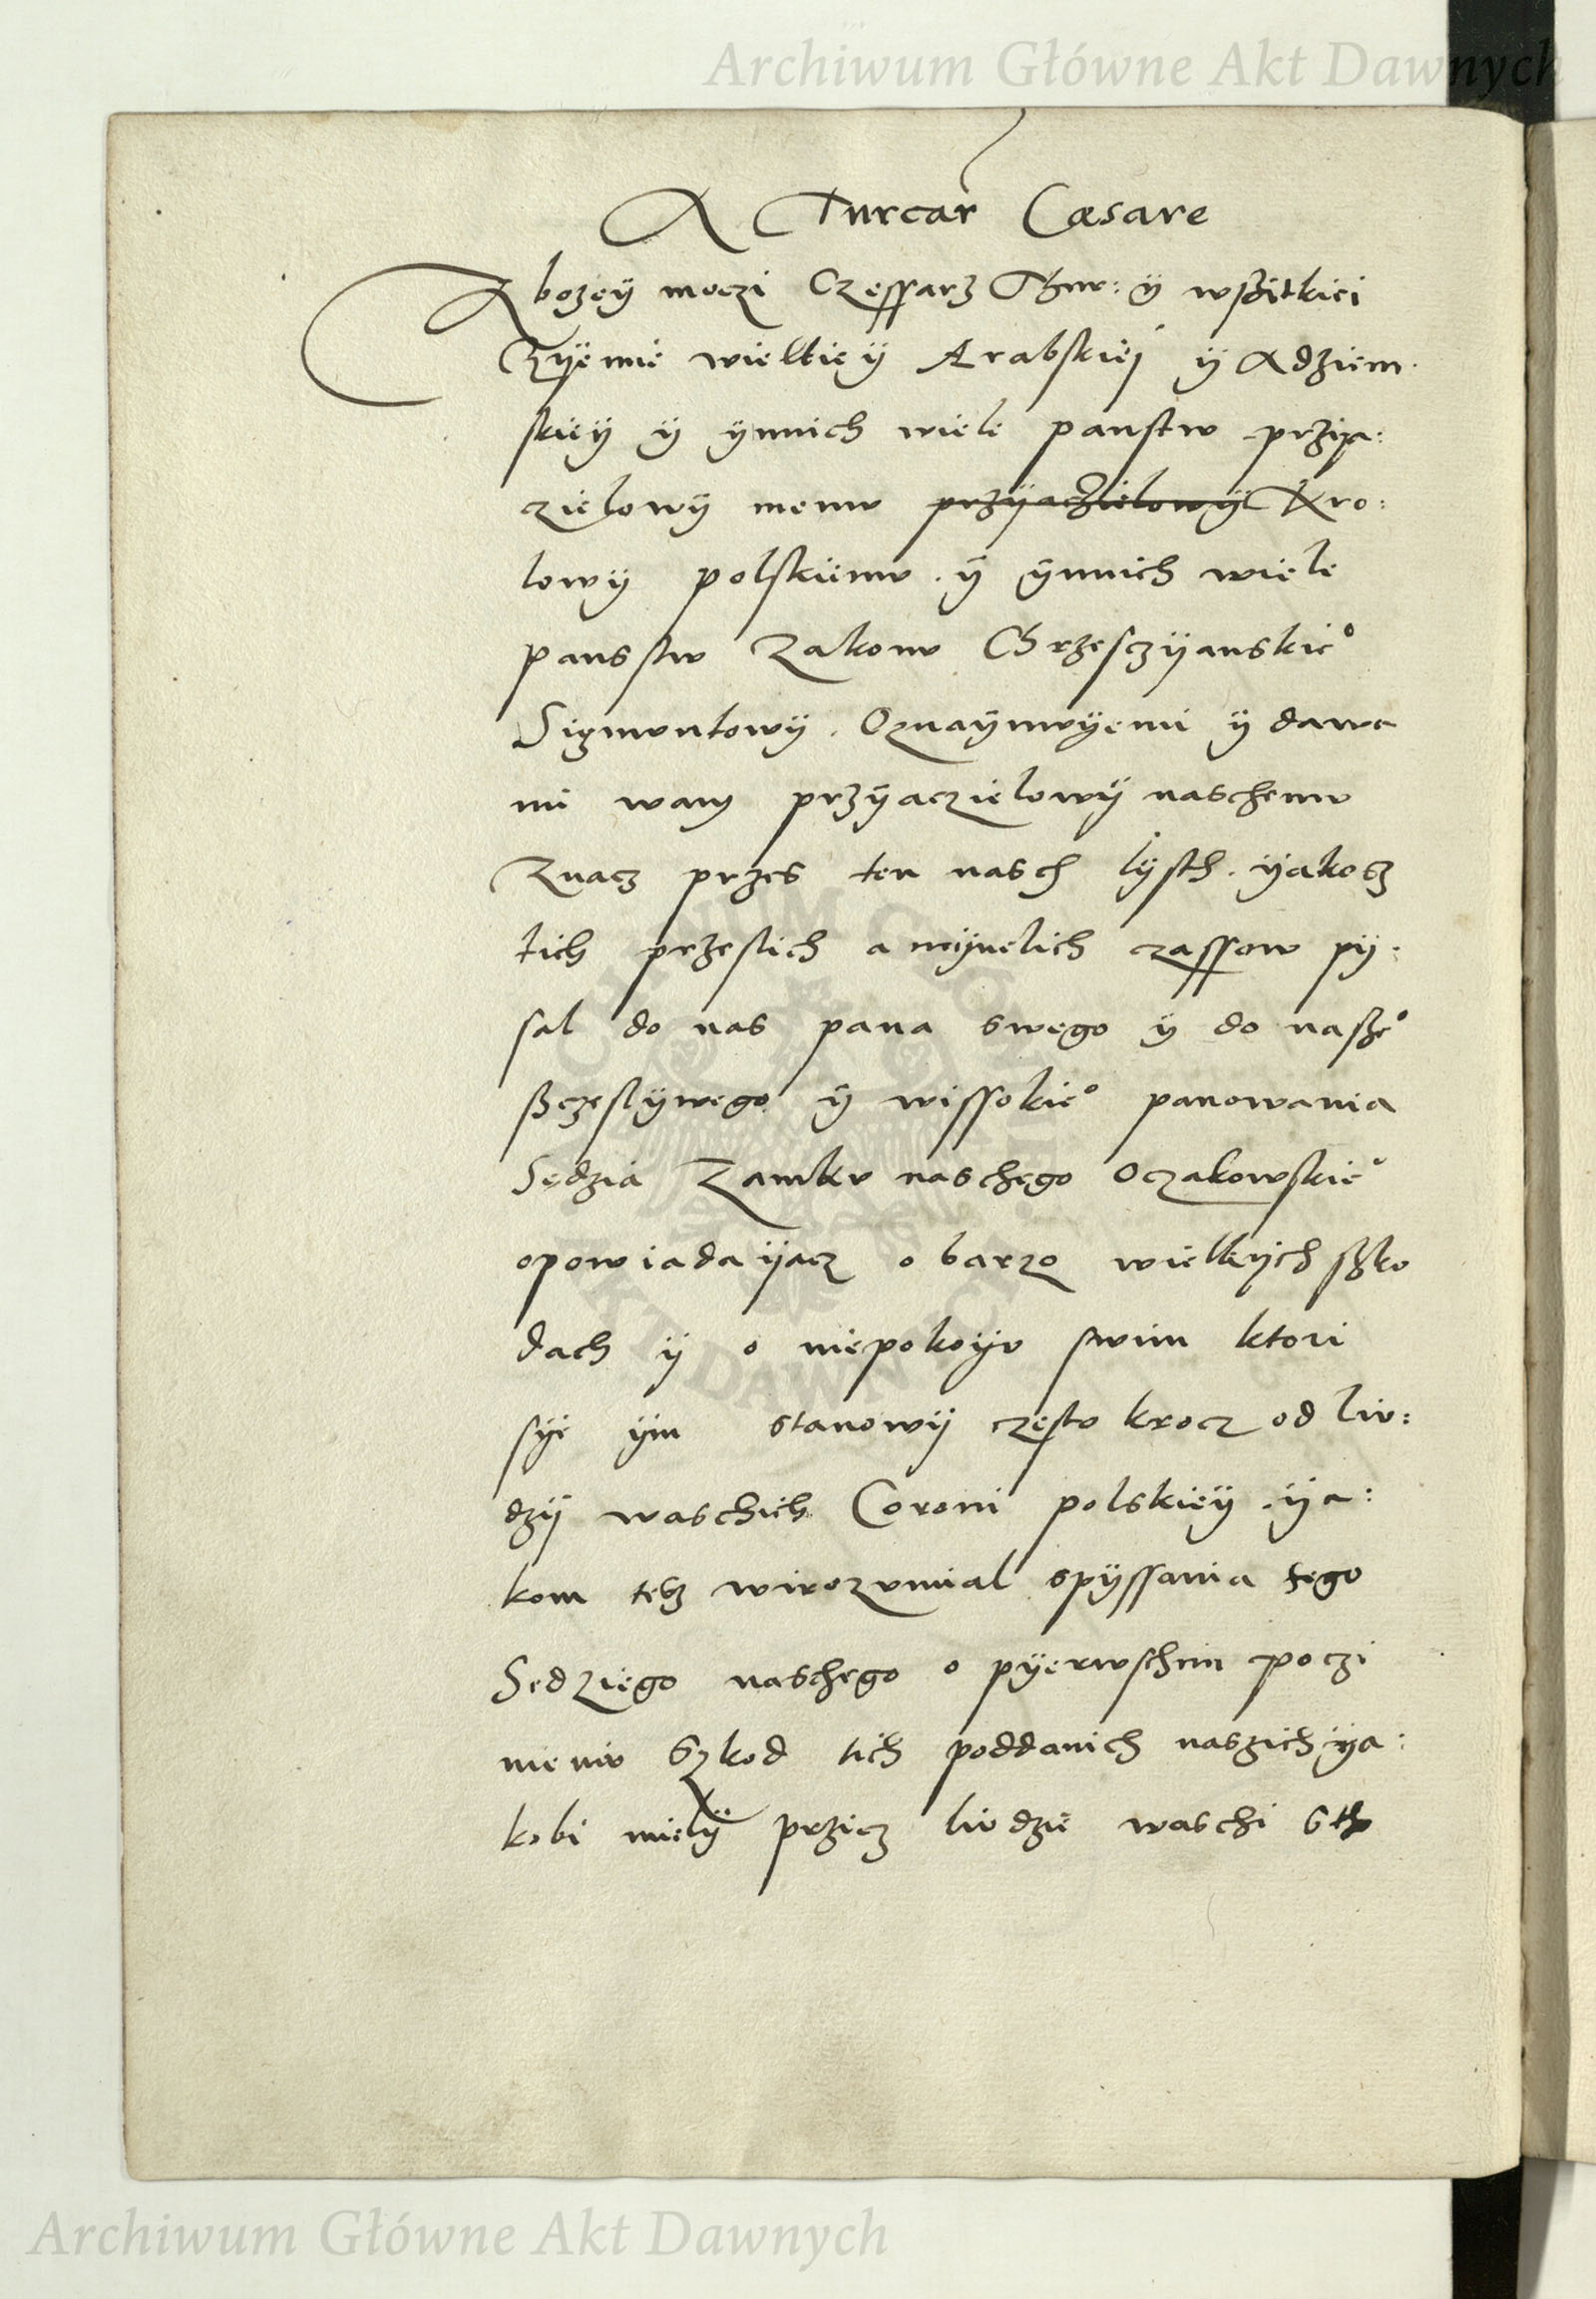 Archiwum Główne Akt Dawnych
A Turcar Cæsare
Z bozey moczi Czessarz Thur: ÿ wssitkiei
Zÿemie wielkieÿ Arabskiej ÿ Adziem
skieÿ ÿ ÿnnich wiele panstw przÿa:
zielowÿ memu przÿaczielowÿ Kro:
lowÿ polskiemu. ÿ ÿnnich wiele
panstw Zakonu Chrzesczÿanskie°
Sigmuntowÿ. Oznaÿmuÿemi ÿ dawa
mi wam przÿaczielowÿ naschemu
Znacz przes ten nasch lÿsth. ÿakosz
tich przeslich a mÿnelich czassow pÿ:
sal do nas pana swego ÿ do nasze°
sczeslÿwego ÿ wissokie° panowania
Sedzia Zamku naschego Oczakowskie°
opowiadaÿacz o barzo wielkÿch szko
dach ÿ o niepokoÿu swim ktori
sÿe ÿm stanowÿ czesto krocz od liu:
dzÿ waschich Coroni polskieÿ. ÿa:
kom tesz wirozumial spÿssania tego
Sedziego naschego o pÿerwschim poczi
nieniu Szkod tich poddanich naszich ÿa:
kobi mielÿ przicz liudzie waschi sth
Archiwum Główne Akt Dawnych